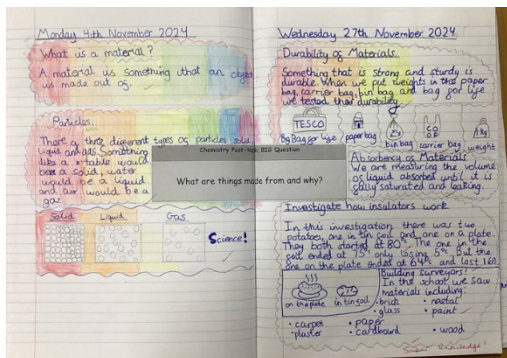 Monday 4th November 2024
What is a material?
A material is something that an object
is made out of.
Particles
There are three different types of particles solid
liquid and gas. Something
like a x-table would
be a solid, water
would be a liquid
and air would be a
gas
Solid Liquid Gas
Science!
Chemistry Post-task BIG Question
What are things made from and why?
Wednesday 27th November 2024
Durability of Materials
Something that is strong and sturdy is
durable. When we put weights in the paper
bag, carrier bag, bin bag and bag for life
we tested their durability.
TESCO
CO
OP
1kg
Bag for life paper bag bin bag carrier bag weight
Absorbency of Materials
We are measuring the volume
of liquid absorbed until it is
fully saturated and leaking.
Investigate how insulators work
In this investigation there was two
potatoes, one in tin foil and one on a plate.
They both started at 80°. The one in the
foil ended at 75° only losing 5°. But the
one on the plate ended at 64° and lost 16°.
on the plate in tin foil
Building surveyors!
In the school we saw
materials including:
• brick • metal
• glass • paint
• carpet • paper
• plaster • cardboard • wood
Super knowledge!